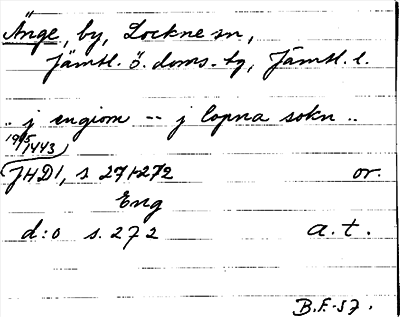 Änge, by, Lockne sn,
Jämtl. ö. doms. tg, Jämtl. l.
.. j engiom -- j lopna sokn ..
19/5 1443
JHD1, s 271-272 or.
Eng
d:o s. 272 a.t.
B.F.-57.